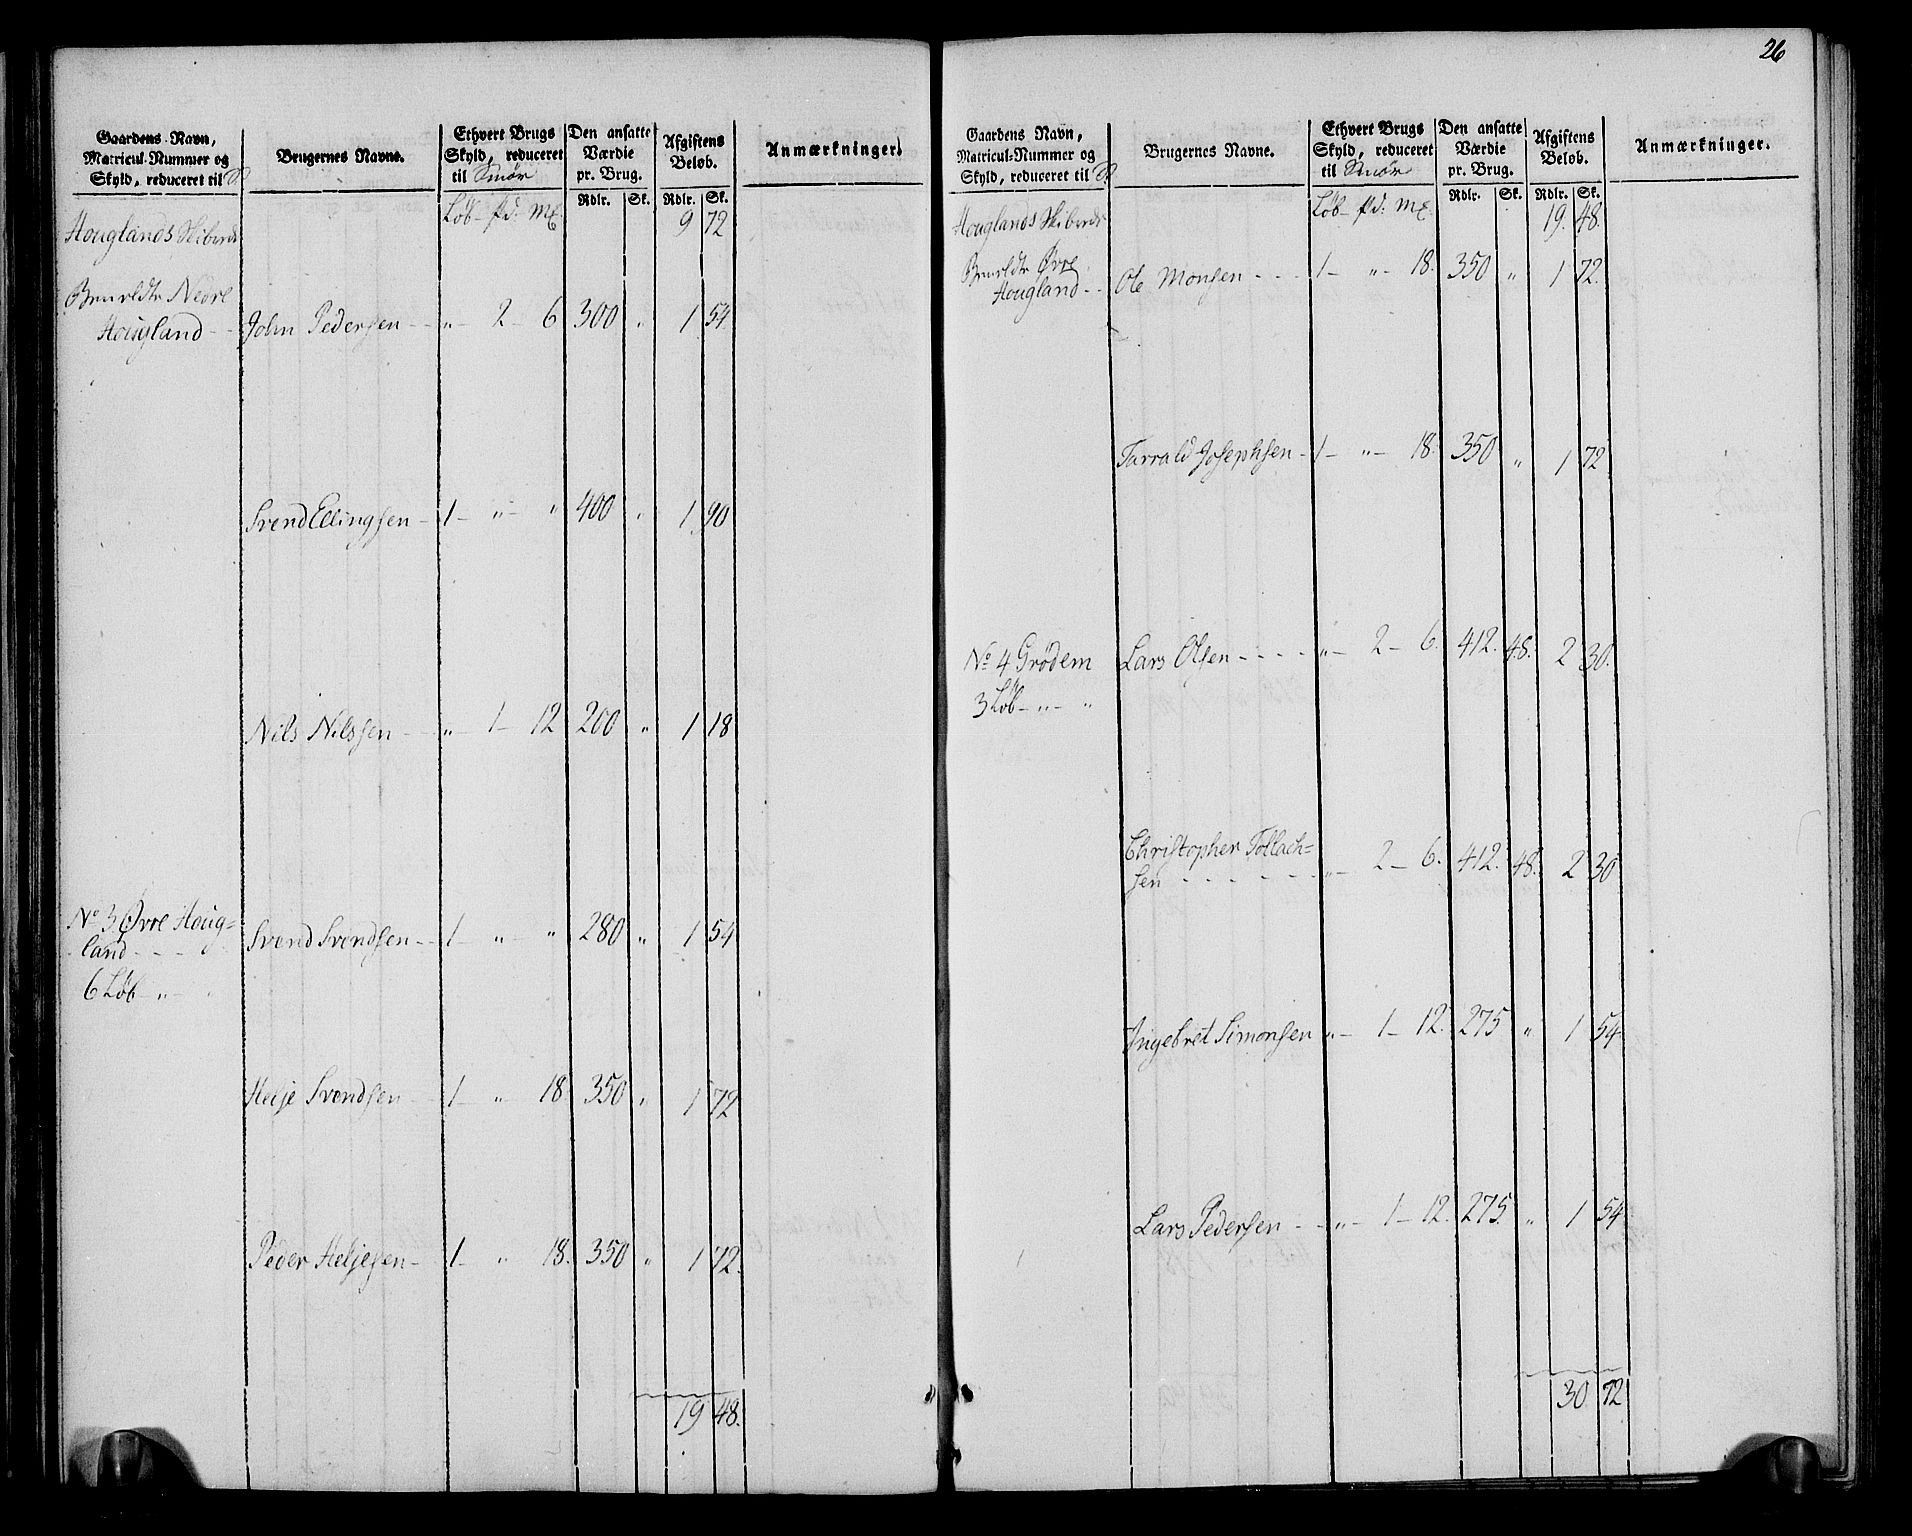 Gaardens Navn,
Matricul-Nummer og
Skyld, reduceret til
Brugernes Navne.
Ethvert Brugs
Skyld, reduceret
til Smør
Den ansatte
Værdie
pr. Brug.
Rdlr. Sk.
Afgiftens
Beløb.
Rdlr. Sk.
Anmærkninger.
Houglands Skibrede Løb - pd: Mk. 9 72
Nedre
Hougland - - John Pedersen - - „ - 2 - 6 300 „ 1 54
Svend Ellingsen - 1 - „ - „ 400 „ 1 90
Nils Nilssen - - „ - 1 - 12 200 „ 1 18
No 3 Øvre Houg=
land - - - Svend Svendsen - - 1 - „ - „ 280 „ 1 54
6 Løb - „ - „
Helje Svendsen - - 1 - „ - 18 350 „ 1 72
Peder Heljesen - 1 - „ - 18. 350 „ 1 72.
19 48.
26
Gaardens Navn,
Matricul-Nummer og
Skyld, reduceret til
Brugernes Navne.
Ethvert Brugs
Skyld, reduceret
til Smør
Den ansatte
Værdie
pr. Brug.
Rdlr. Sk.
Afgiftens
Beløb.
Rdlr. Sk.
Anmærkninger.
Houglands Skibrede Løb - pd: Mk. 19. 48.
Øvre
Hougland - - Ole Monsen - - - 1 - „ - 18. 350 „ 1 72.
Tarrald Josephsen - 1 - „ - 18. 350 „ 1 72
No 4 Grødem Lars Olsen - - - - „ - 2 - 6. 412. 48. 2 30.
3 Løb - „ - „
Christopher Tollach=
sen - - - - - - „ - 2 - 6. 412. 48. 2 30
Ingebret Simonsen „ - 1 - 12. 275 „ 1 54
Lars Pedersen - - „ - 1 - 12. 275. „ 1 54
30 72